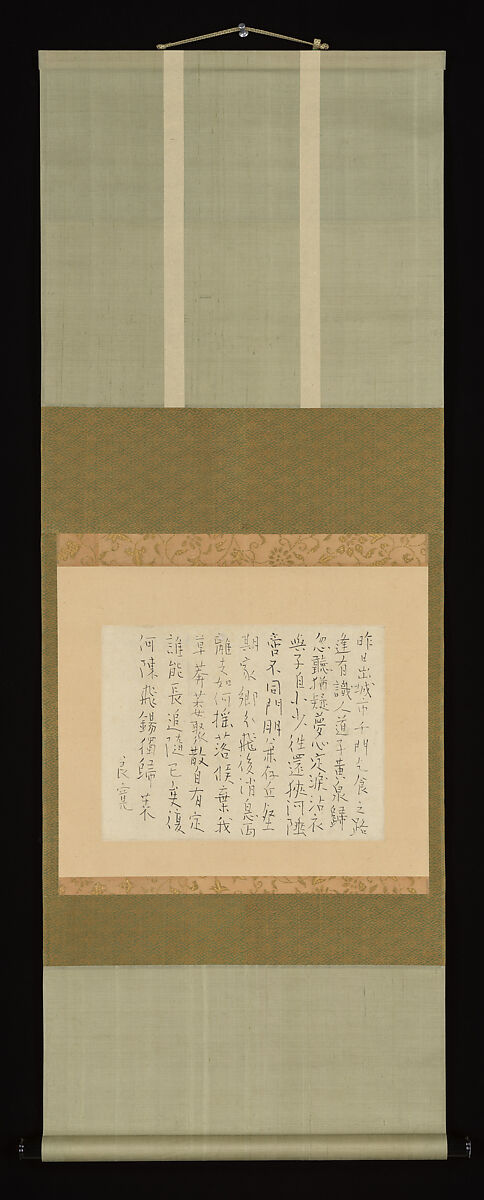 昨日出城市千門乞食之路
逢有識人道子黄泉歸
忽聽猶疑夢心定淚沾衣
與子自小少往還狹河陲
啻不同門朋兼存丘壑
期家鄉分飛後消息兩
離支如何搖落候棄我
草莽萋聚散自有定
誰能長追隨已矣復
何陳飛錫獨歸来
良寛